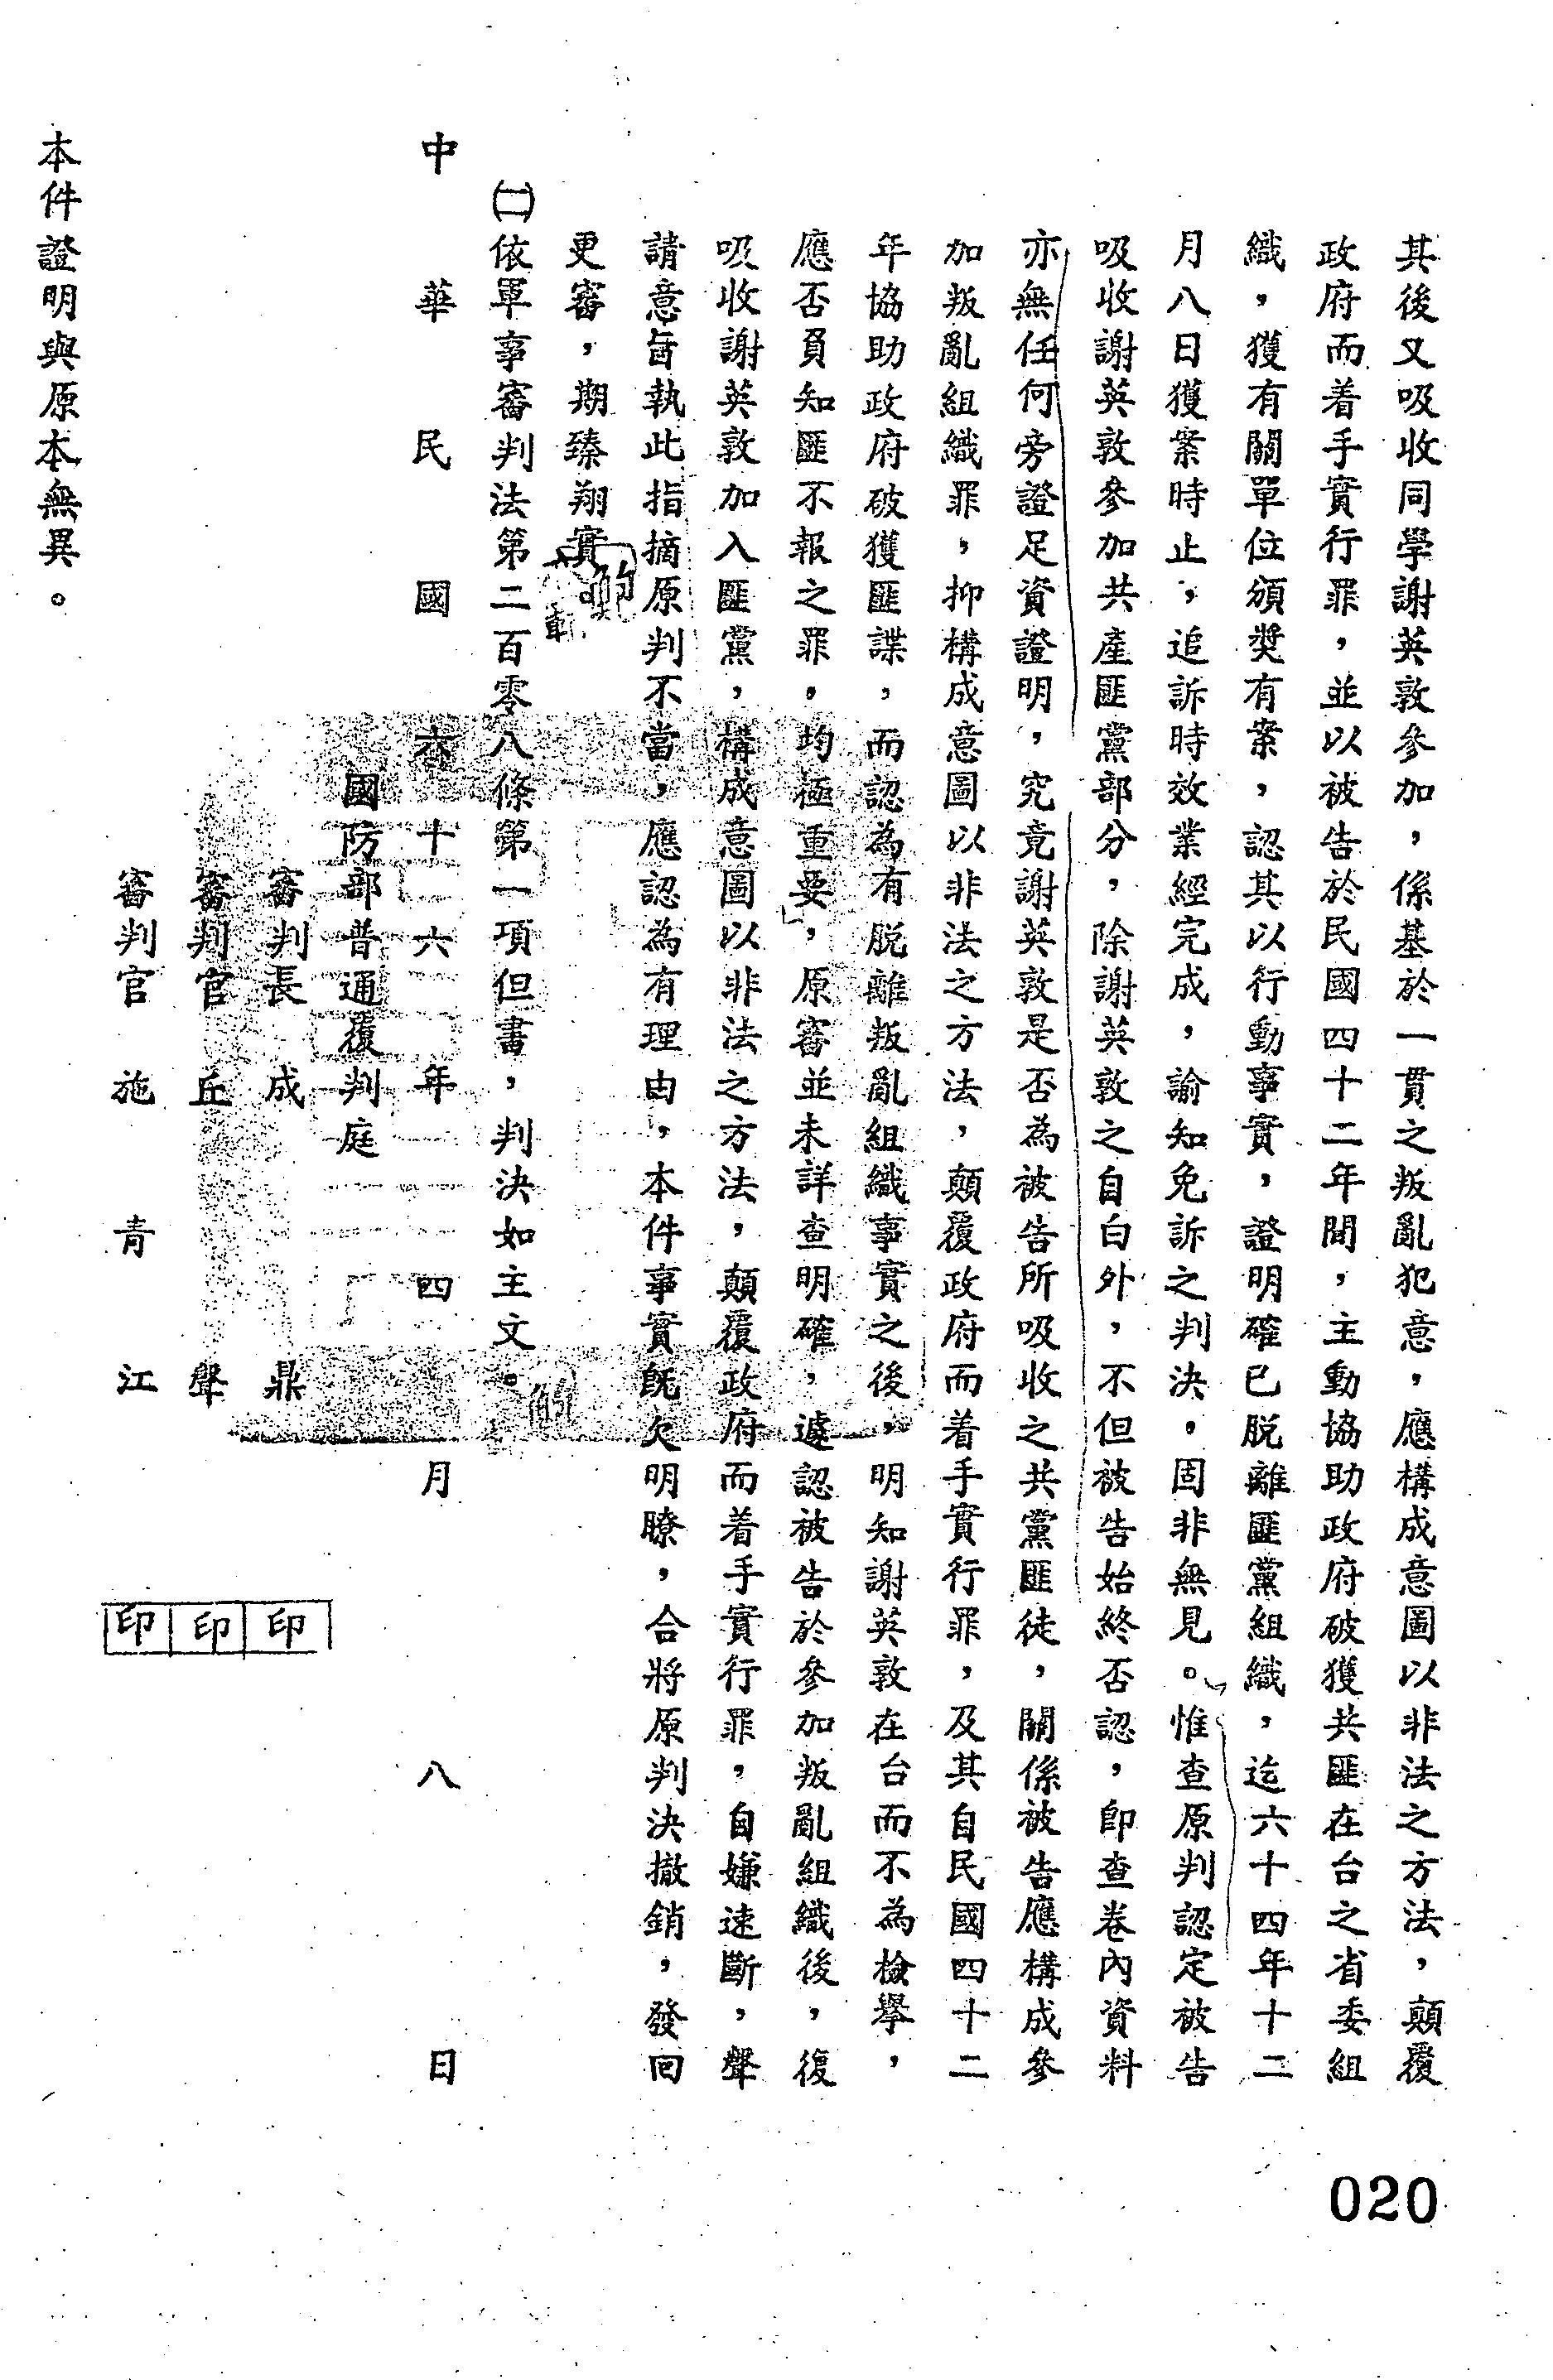 其後又吸收同學謝英敦參加，係基於一貫之叛亂犯意，應構成意圖以非法之方法，顛覆
政府而着手實行罪，並以被告於民國四十二年間，主動協助政府破獲共匪在台之省委組
織，獲有關單位頒獎有案，認其以行動事實，證明確已脱離匪黨組織，迄六十四年十二
月八日獲案時止，追訴時效業經完成，諭知免訴之判決，固非無見。惟查原判認定被告
吸收謝英敦參加共產匪黨部分，除謝英敦之自白外，不但被告始終否認，即查卷內資料
亦無任何旁證足資證明，究竟謝英敦是否為被告所吸收之共黨匪徒，關係被告應構成參
加叛亂組織罪，抑構成意圖以非法之方法，顛覆政府而着手實行罪，及其自民國四十二
年協助政府破獲匪諜，而認為有脱離叛亂組織事實之後，明知謝英敦在台而不為檢舉，
應否負知匪不報之罪，均極重要，原審並未詳查明確，遽認被告於參加叛亂組織後，復
吸收謝英敦加入匪黨，構成意圖以非法之方法，顛覆政府而着手實行罪，自嫌速斷，聲
請意旨執此指摘原判不當，應認為有理由，本件事實既欠明瞭，合將原判決撤銷，發回
更審，期臻翔實
㈡依軍事審判法第二百零八條第一項但書，判決如主文。
中華民國六十六年四月八日
國防部普通覆判庭
審判長 成 鼎 印
審判官 丘 聲 印
審判官 施 青 江 印
本件證明與原本無異。
020